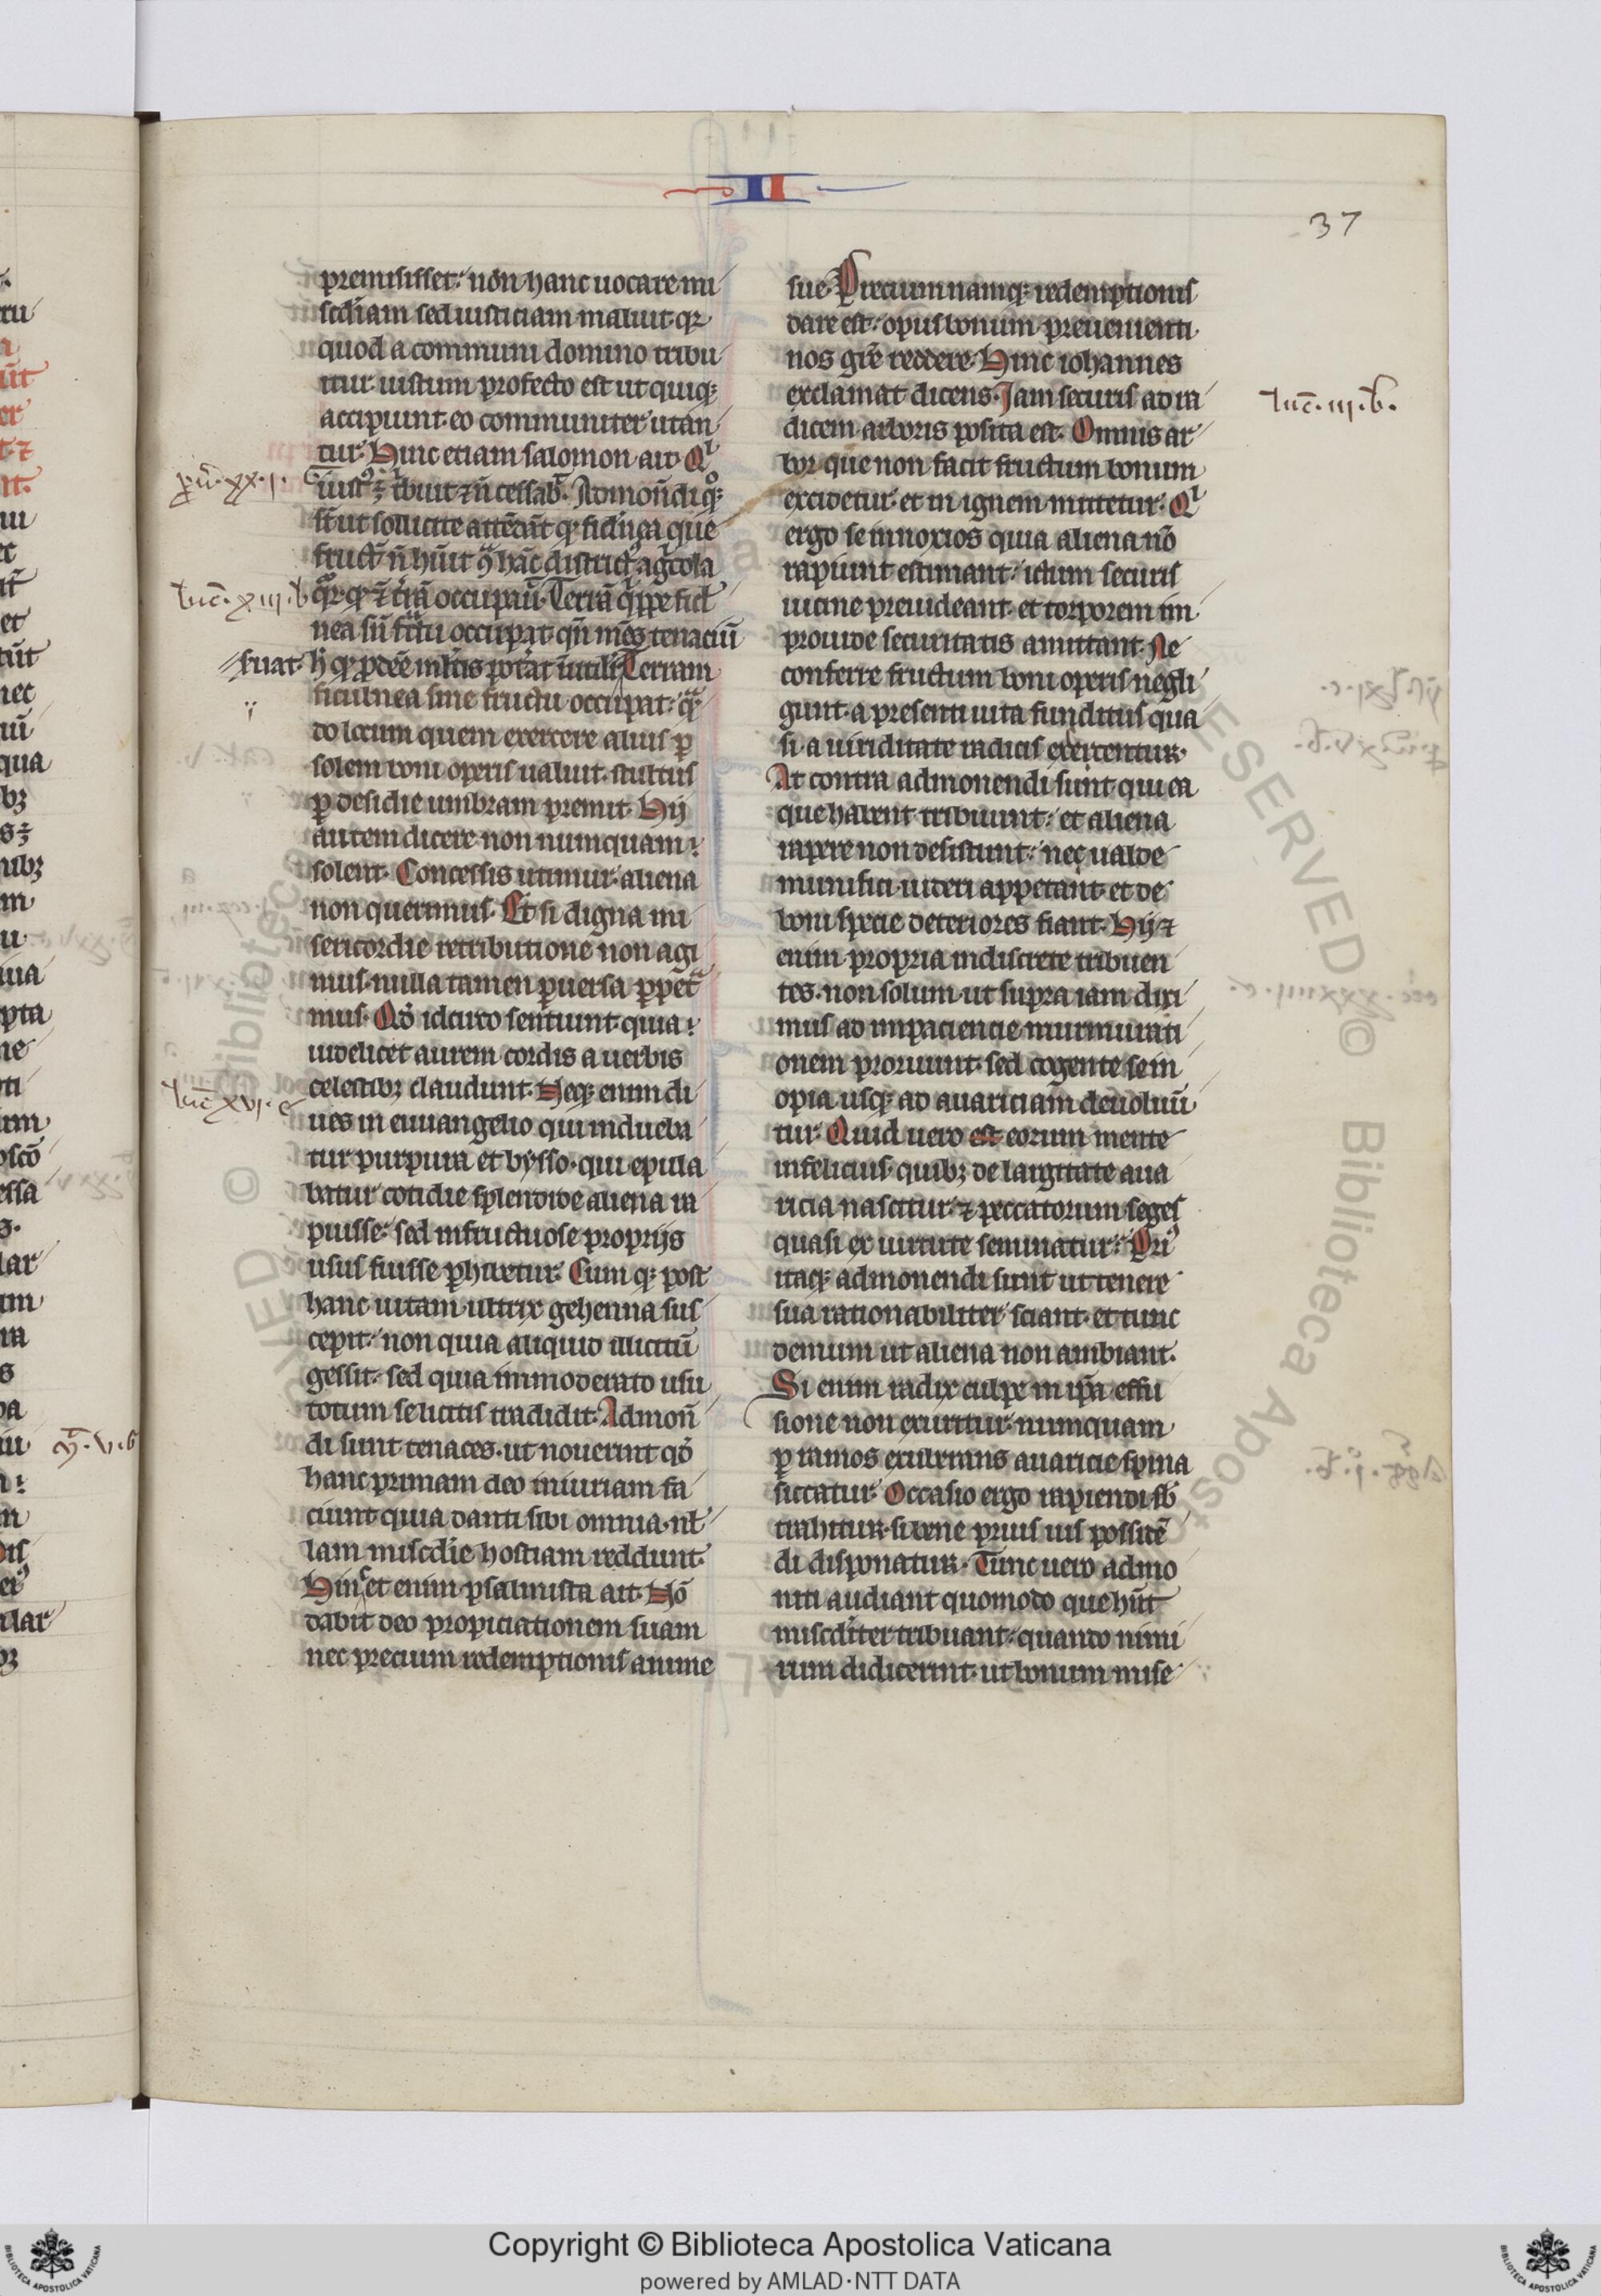 II
37
premisisset: non hanc uocare mi
scdiam sed iusticiam maluit. qr
quod a communi domino tribu
itur. iustum profecto est ut quiqꝫ
accipiunt. eo communiter utan
tur. Hinc etiam salomon ait. Qi
pũ. xx.i.
iustꝰ ẽ tbuit ⁊ ñ cessabͭ. Admonẽdi qͦꝫ
st̃ ut sollicite attẽdãt qꝫ ficͥnea que
fructũ ñ hũit 9ͭ hãc districtꝰ agͥcola
luc̃. xiii. b
qͥr. qꝫ ⁊ tͥrã occupauͭ. Terrã qͥppe ficl̃
nea sñ fͨtu occupat. qñ mẽs tenaciũ
fuat. h̾ qꝫ ꝓdẽẽ ml̾tis poͭat iutiliͭ. Terram
ficulnea sine fructu occupat: qͣ
do locum quem exercere alius ꝑ
solem boni operis ualuit. stultus
ꝑ desidie umbram premit. Hij
autem dicere non numquam
solent. Concessis utimur. aliena
non querimus. Et si digna mi
sericordie retributione non agi
mus. nulla tamen ꝑuersa ꝑpetͣ
mus. Qđ idcirco sentiunt. quia
uidelicet aurem cordis a uerbis
luc̃ xvi. e
celestibꝫ claudunt. Neqꝫ enim di
ues in euuangelio qui indueba
tur purpura et bysso. qui epula
batur cotidie splendide aliena ra
puisse: sed infructuose proprijs
usus fuisse ꝑhibetur. Cum qꝫ post
hanc uitam ultrix gehenna sus
cepit: non quia aliquid illicitũ
gessit: sed quia immoderato usu
totum se licitis tradidit. Admoñ
di sunt tenaces. ut nouerint qđ
hanc primam deo iniuriam fa
ciunt quia danti sibi omnia. nl̃
lam miscdie hostiam reddunt.
Hinc et enim psalmista ait. Nõ
dabit deo propiciationem suam
nec precium redemptionis anime
sue. Precium namqꝫ redemptionis
dare est: opus bonum preuenienti
nos gr̃e reddere. Hinc iohannes
exclamat dicens. Jam securis ad ra
luc̃. iij. b.
dicem arboris posita est. Omnis ar
bor que non facit fructum bonum
excidetur. et in ignem mittetur. Qi
ergo se innoxios quia aliena nõ
rapiunt estimant: ictum securis
uicine preuideant. et torporem im
prouide securitatis amittant. Ne
conferre fructum boni operis negli
gunt. a presenti uita funditus qua
si a uiriditate radicis exercentur.
At contra admonendi sunt qui ea
que habent tribuunt: et aliena
rapere non desistunt: neç ualde
munifici uideri appetant. et de
boni specie deteriores fiant. Hij ⁊
enim propria indiscrete tribuen
tes. non solum ut supra iam dixi
mus ad impaciencie murmurati
onem proruunt. sed cogente se in
opia usqꝫ ad auariciam deuoluũ
tur. Quid uero est eorum mente
infelicius. quibꝫ de largitate aua
ricia nascitur. ⁊ peccatorum seges
quasi ex uirtute seminatur: Priꝰ
itaqꝫ admonendi sunt ut tenere
sua rationabiliter sciant. et tunc
demum ut aliena non ambiant.
Si enim radix culpe in ip̃a effu
sione non exuritur. numquam
ꝑ ramos exuberans auaricie spina
siccatur. Occasio ergo rapiendi sb̾
trahitur. si bene prius ius possidẽ
di disponatur. Tunc uero admo
niti audiant quomodo que hñt
miscditer tribuant: quando nimi
rum didicerint. ut bonum mise
ꝫ. v. b
Copyright © Biblioteca Apostolica Vaticana
powered by AMLAD·NTT DATA